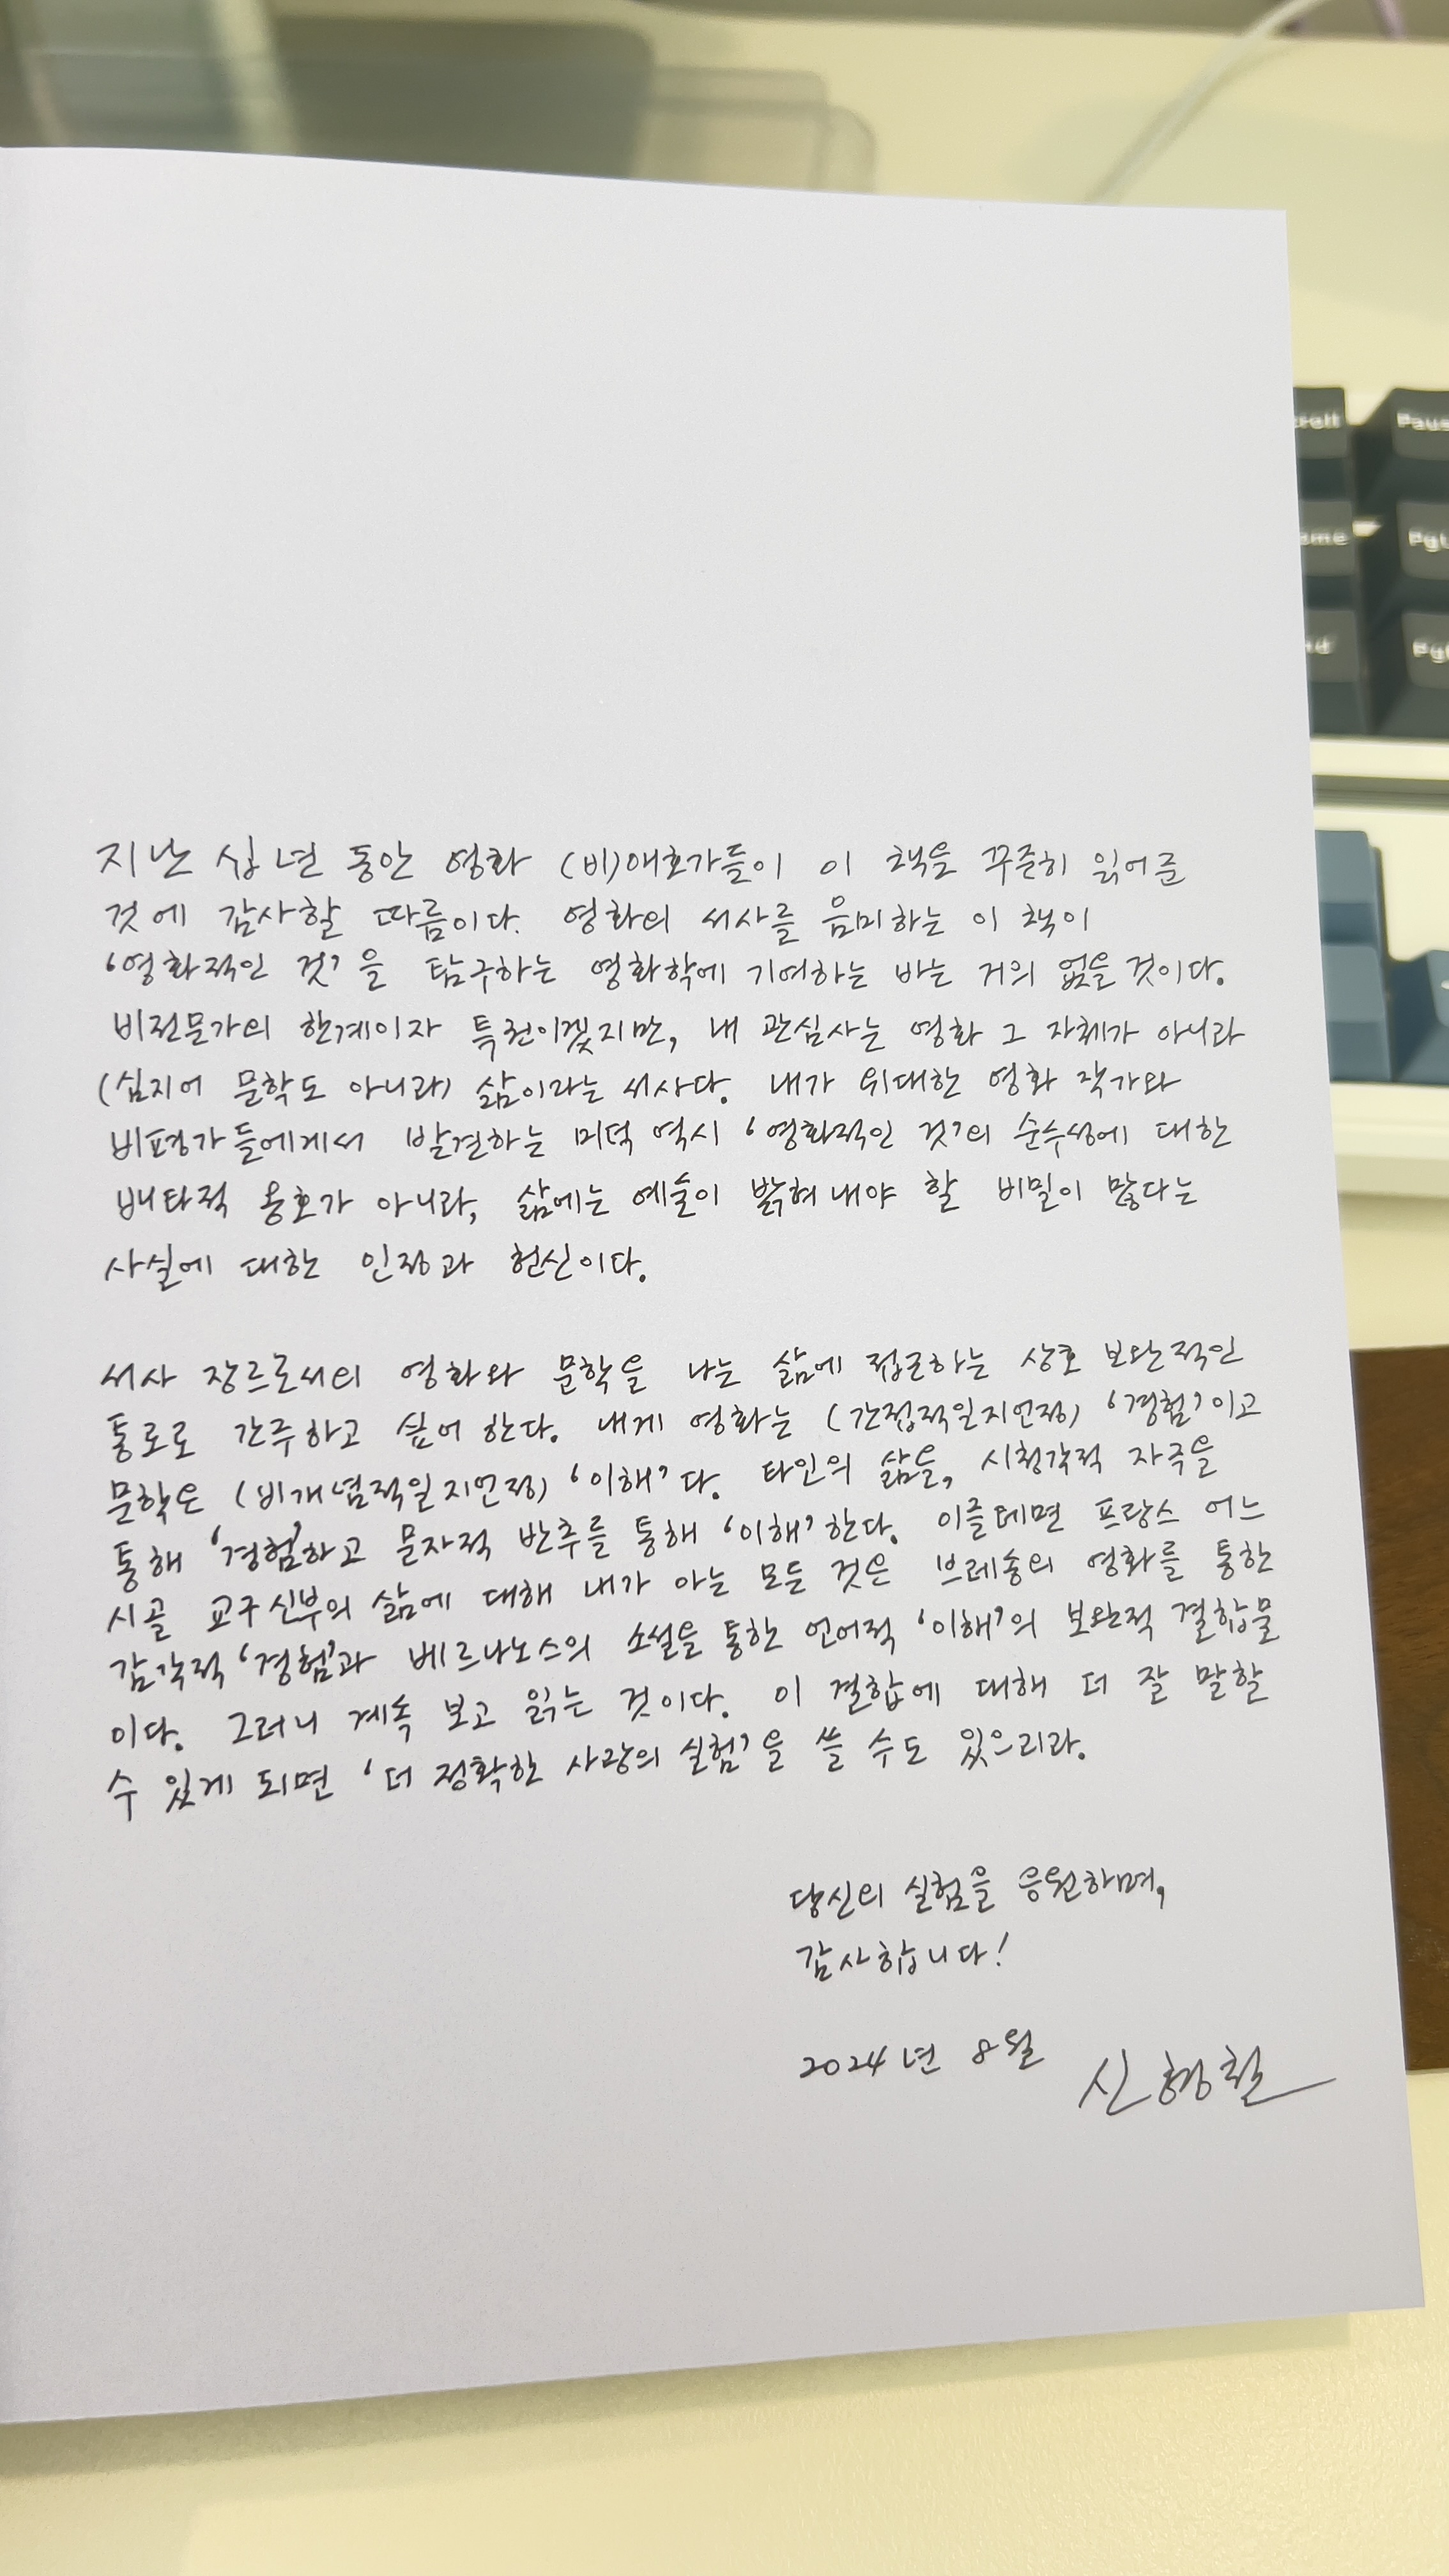 지난 십 년 동안 영화 (비)애호가들이 이 책을 꾸준히 읽어준
것에 감사할 따름이다. 영화의 서사를 음미하는 이 책이
‘영화적인 것’을 탐구하는 영화학에 기여하는 바는 거의 없을 것이다.
비전문가의 한계이자 특권이겠지만, 내 관심사는 영화 그 자체가 아니라
(심지어 문학도 아니라) 삶이라는 서사다. 내가 위대한 영화 작가와
비평가들에게서 발견하는 미덕 역시 ‘영화적인 것’의 순수성에 대한
배타적 옹호가 아니라, 삶에는 예술이 밝혀내야 할 비밀이 많다는
사실에 대한 인정과 헌신이다.
서사 장르로서의 영화와 문학을 나는 삶에 접근하는 상호 보완적인
통로로 간주하고 싶어 한다. 내게 영화는 (간접적일지언정) ‘경험’이고
문학은 (비개념적일지언정) ‘이해’다. 타인의 삶을, 시청각적 자극을
통해 ‘경험’하고 문자적 반추를 통해 ‘이해’한다. 이를테면 프랑스 어느
시골 교구신부의 삶에 대해 내가 아는 모든 것은 브레송의 영화를 통한
감각적 ‘경험’과 베르나노스의 소설을 통한 언어적 ‘이해’의 보완적 결합물
이다. 그러니 계속 보고 읽는 것이다. 이 결합에 대해 더 잘 말할
수 있게 되면 ‘더 정확한 사랑의 실험’을 쓸 수도 있으리라.
당신의 실험을 응원하며,
감사합니다!
2024년 8월 신형철